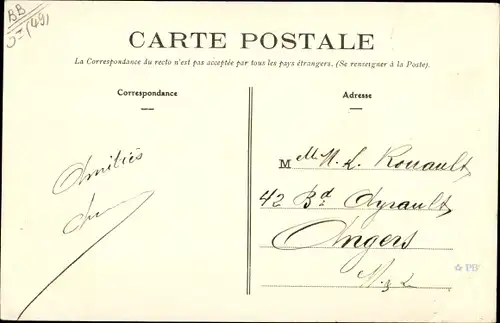 BB
(49)
CARTE POSTALE
La Correspondance du recto n'est pas acceptée par tous les pays étrangers. (Se renseigner à la Poste).
Correspondance
Adresse
Amitiés
Melle M. L. Rouault
42 Bd Ayrault
Angers
M. & L
PB